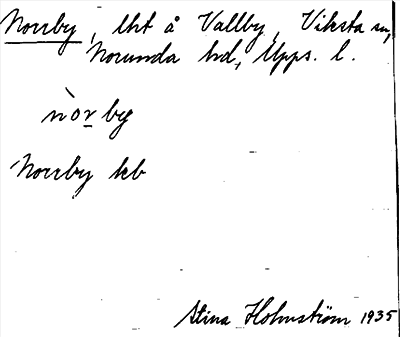 Norrby, lht å Vallby, Viksta sn,
Norunda hd, Upps. l.
nòr by
Norrby kb
Stina Holmström 1935